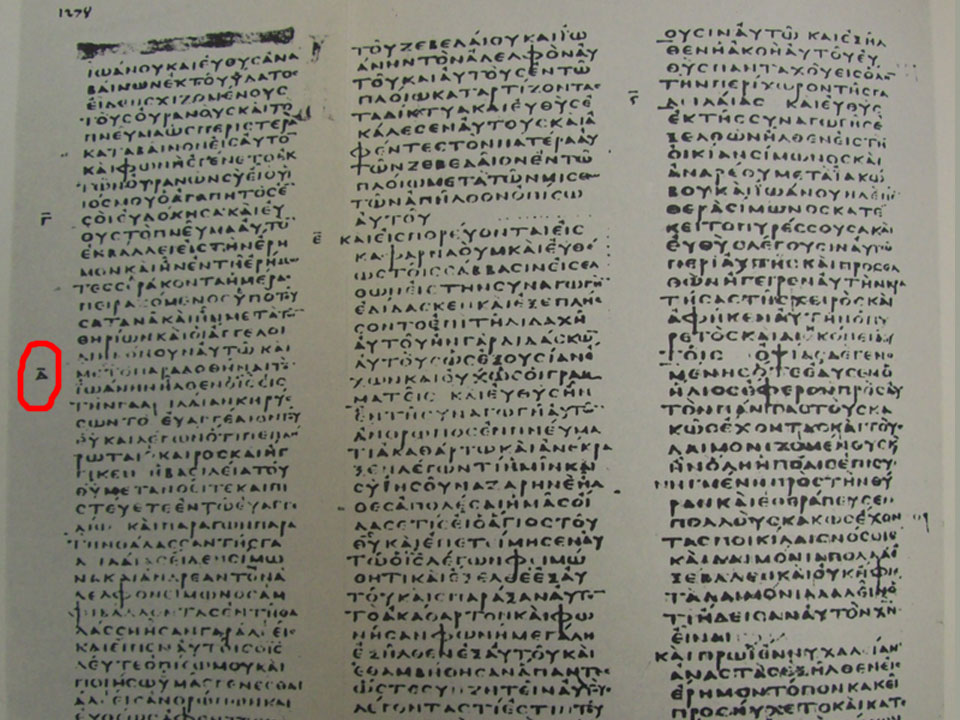 1278
ΙΩΑΝΟΥΚΑΙΕΥΘΥΣΑΝΑ
ΒΑΙΝΩΝΕΚΤΟΥΥΔΑΤΟΣ
ΕΙΔΕΝΣΧΙΖΟΜΕΝΟΥΣ
ΤΟΥΣΟΥΡΑΝΟΥΣΚΑΙΤΟ
ΠΝΕΥΜΑΩΣΠΕΡΙΣΤΕΡΑ
ΚΑΤΑΒΑΙΝΟΝΕΙΣΑΥΤΟ
ΚΑΙΦΩΝΗΕΓΕΝΕΤΟΕΚ
ΤΩΝΟΥΡΑΝΩΝΣΥΕΙΟΥΙ
ΙΟΣΜΟΥΟΑΓΑΠΗΤΟΣΕ
Γ ΣΟΙΕΥΔΟΚΗΣΑΚΑΙΕΥ
ΘΥΣΤΟΠΝΕΥΜΑΑΥΤΟ
ΕΚΒΑΛΛΕΙΕΙΣΤΗΝΕΡΗ
ΜΟΝΚΑΙΗΝΕΝΤΗΕΡΗΜΩ
ΤΕΣΣΕΡΑΚΟΝΤΑΗΜΕΡΑ
ΠΕΙΡΑΖΟΜΕΝΟΣΥΠΟΤΟΥ
ΣΑΤΑΝΑΚΑΙΗΝΜΕΤΑΤ
ΘΗΡΙΩΝΚΑΙΟΙΑΓΓΕΛΟΙ
ΔΙΗΚΟΝΟΥΝΑΥΤΩ ΚΑΙ
Δ ΜΕΤΑΤΟΠΑΡΑΔΟΘΗΝΑΙΤ
ΙΩΑΝΗΝΗΛΘΕΝΟΙΣΕΙΣ
ΤΗΝΓΑΛΙΛΑΙΑΝΚΗΡΥΣ
ΣΩΝΤΟ ΕΥΑΓΓΕΛΙΟΝΤΟΥ
ΘΥΚΑΙΛΕΓΩΝΟΤΙΠΕΠΛΗ
ΡΩΤΑΙΟΚΑΙΡΟΣΚΑΙΗΓ
ΓΙΚΕΝ ΗΒΑΣΙΛΕΙΑΤΟΥ
ΘΥΜΕΤΑΝΟΕΙΤΕΚΑΙΠΙ
ΣΤΕΥΕΤΕΕΝΤΩΕΥΑΓΓΕ
ΛΙΩ ΚΑΙΠΑΡΑΓΩΝΠΑΡΑ
ΤΗΝΘΑΛΑΣΣΑΝΤΗΣΓΑ
ΛΙΛΑΙΑΣΕΙΔΕΝΣΙΜΩ
ΝΑΚΑΙΑΝΔΡΕΑΝΤΟΝΑ
ΔΕΛΦΟΝΣΙΜΩΝΟΣΑΜ
ΦΙΒΑΛΛΟΝΤΑΣΕΝΤΗΘΑ
ΛΑΣΣΗΗΣΑΝΓΑΡΑΛΕΕΙ
ΚΑΙΕΙΠΕΝΑΥΤΟΙΣΟΙΣ
ΔΕΥΤΕΟΠΙΣΩΜΟΥΚΑΙ
ΠΟΙΗΣΩΥΜΑΣΓΕΝΕΣΘΑΙ
ΑΛΕΕΙΣΑΝΘΡΩΠΩΝΚΑΙ
ΤΟΥΖΕΒΕΔΑΙΟΥΚΑΙΙΩ
ΑΝΗΝΤΟΝΑΔΕΛΦΟΝΑΥ
ΤΟΥΚΑΙΑΥΤΟΥΣΕΝΤΩ
ΠΛΟΙΩΚΑΤΑΡΤΙΖΟΝΤΑ
ΤΑΔΙΚΤΥΑΚΑΙΕΥΘΥΣΕ
ΚΑΛΕΣΕΝΑΥΤΟΥΣΚΑΙΑ
ΦΕΝΤΕΣΤΟΝΠΑΤΕΡΑΑΥ
ΤΩΝΖΕΒΕΔΑΙΟΝΕΝΤΩ
ΠΛΟΙΩΜΕΤΑΤΩΝΜΙΣΘ
ΤΩΝΑΠΗΛΘΟΝΟΠΙΣΩ
ΑΥΤΟΥ
Ε ΚΑΙΕΙΣΠΟΡΕΥΟΝΤΑΙΕΙΣ
ΚΑΦΑΡΝΑΟΥΜΚΑΙΕΥΘΥ
ΩΣΤΟΙΣΣΑΒΒΑΣΙΝΕΙΣΕΛ
ΘΩΝΕΙΣΤΗΝΣΥΝΑΓΩΓΗ
ΕΔΙΔΑΣΚΕΝΚΑΙΕΞΕΠΛΗΣ
ΣΟΝΤΟΕΠΙΤΗΔΙΔΑΧΗ
ΑΥΤΟΥΗΝΓΑΡΔΙΔΑΣΚΩ
ΑΥΤΟΥΣΩΣΕΞΟΥΣΙΑΝΕ
ΧΩΝΚΑΙΟΥΧΩΣΟΙΓΡΑΜ
ΜΑΤΕΙΣ ΚΑΙΕΥΘΥΣΗΝ
ΕΝΤΗΣΥΝΑΓΩΓΗΑΥΤΩ
ΑΝΘΡΩΠΟΣΕΝΠΝΕΥΜΑ
ΤΙΑΚΑΘΑΡΤΩΚΑΙΑΝΕΚΡΑ
ΞΕΝΛΕΓΩΝΤΙΗΜΙΝΚΑΙ
ΣΥΙΗΣΟΥΝΑΖΑΡΗΝΕΗΛ
ΘΕΣΑΠΟΛΕΣΑΙΗΜΑΣΟΙ
ΔΑΣΕΤΙΣΕΙΟΑΓΙΟΣΤΟΥ
ΘΥΚΑΙΕΠΕΤΙΜΗΣΕΝΑΥ
ΤΩΟΙΣΛΕΓΩΝΦΙΜΩ
ΘΗΤΙΚΑΙΕΞΕΛΘΕΕΞΑΥ
ΤΟΥΚΑΙΣΠΑΡΑΞΑΝΑΥΤ
ΤΟΑΚΑΘΑΡΤΟΝΚΑΙΦΩ
ΝΗΣΑΝΦΩΝΗΜΕΓΑΛΗ
ΕΞΗΛΘΕΝΕΞΑΥΤΟΥΚΑΙ
ΕΘΑΜΒΗΘΗΣΑΝΑΠΑΝΤ
ΩΣΤΕΣΥΝΖΗΤΕΙΝΑΥΤΟΥ
ΛΕΓΟΝΤΑΣΤΙΕΣΤΙΝ
ΟΥΣΙΝΑΥΤΩ ΚΑΙΕΞΗΛ
ΘΕΝΗΑΚΟΗΑΥΤΟΥΕΥ
ΘΥΣΠΑΝΤΑΧΟΥΕΙΣΟΛΗ
ΤΗΝΠΕΡΙΧΩΡΟΝΤΗΣΓΑ
ς ΛΙΛΑΙΑΣ ΚΑΙΕΥΘΥΣ
ΕΚΤΗΣΣΥΝΑΓΩΓΗΣΕ
ΞΕΛΘΩΝΗΛΘΕΝΕΙΣΤΗ
ΟΙΚΙΑΝΣΙΜΩΝΟΣΚΑΙ
ΑΝΔΡΕΟΥΜΕΤΑΙΑΚΩ
ΒΟΥΚΑΙΙΩΑΝΟΥΗΔΕΠΕ
ΘΕΡΑΣΙΜΩΝΟΣΚΑΤΕ
ΚΕΙΤΟΠΥΡΕΣΣΟΥΣΑΚΑΙ
ΕΥΘΥΣΛΕΓΟΥΣΙΝΑΥΤΩ
ΠΕΡΙΑΥΤΗΣΚΑΙΠΡΟΣΕΛ
ΘΩΝΗΓΕΙΡΕΝΑΥΤΗΝΚΡΑ
ΤΗΣΑΣΤΗΣΧΕΙΡΟΣΚΑΙ
ΑΦΗΚΕΝΑΥΤΗΝΟΠΥ
ΡΕΤΟΣΚΑΙΔΙΗΚΟΝΕΙΑΥ
ΤΟΙΣ ΟΨΙΑΣΔΕΓΕΝΟ
ΜΕΝΗΣΟΤΕΕΔΥΣΕΝΟ
ΗΛΙΟΣΕΦΕΡΟΝΠΡΟΣΑΥ
ΤΟΝΠΑΝΤΑΣΤΟΥΣΚΑ
ΚΩΣΕΧΟΝΤΑΣΚΑΙΤΟΥ
ΔΑΙΜΟΝΙΖΟΜΕΝΟΥΣΚ
ΗΝΟΛΗΗΠΟΛΙΣΕΠΙΣΥ
ΗΓΜΕΝΗΠΡΟΣΤΗΝΘΥ
ΡΑΝΚΑΙΕΘΕΡΑΠΕΥΣΕΝ
ΠΟΛΛΟΥΣΚΑΚΩΣΕΧΟΝ
ΤΑΣΠΟΙΚΙΛΑΙΣΝΟΣΟΙΣ
ΚΑΙΔΑΙΜΟΝΙΑΠΟΛΛΑΕ
ΞΕΒΑΛΕΝΚΑΙΟΥΚΗΦΙΕ
ΤΑΔΑΙΜΟΝΙΑΛΑΛΕΙΝΟ
ΤΙΗΔΕΙΣΑΝΑΥΤΟΝΧΝ
ΕΙΝΑΙ
ΚΑΙΠΡΩΙΕΝΝΥΧΑΛΙΑΝ
ΑΝΑΣΤΑΣΕΞΗΛΘΕΝΕΙ
ΕΡΗΜΟΝΤΟΠΟΝΚΑΚΕΙ
ΠΡΟΣΗΥΧΕΤΟΚΑΙΚΑΤ